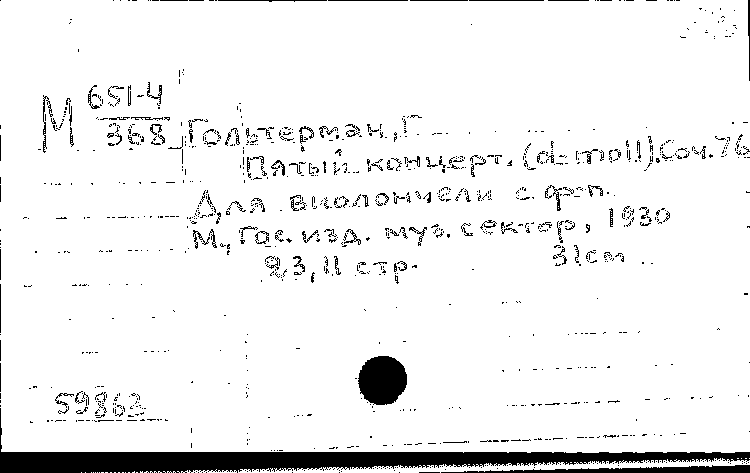 М 651-4
368
Гольтерман, Г.
Пятый концерт. (d-moll). Соч. 76
Для виолончели с ф-п.
М., Гос. изд. муз. сектор, 1930
23, 11 стр. 31cm
59863